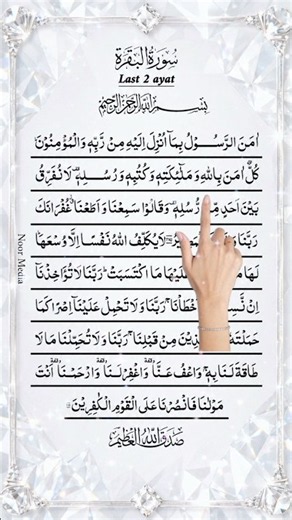 سُورَةُ الْبَقَرَةِ
Last 2 ayat
بِسْمِ اللهِ الرَّحْمٰنِ الرَّحِيْمِ
اٰمَنَ الرَّسُوْلُ بِمَاۤ اُنْزِلَ اِلَيْهِ مِنْ رَّبِّهٖ وَالْمُؤْمِنُوْنَ
كُلٌّ اٰمَنَ بِاللهِ وَمَلٰٓئِكَتِهٖ وَكُتُبِهٖ وَرُسُلِهٖ لَا نُفَرِّقُ
بَيْنَ اَحَدٍ رُّسُلِهٖ وَقَالُوْا سَمِعْنَا وَاَطَعْنَا غُفْرَانَكَ
رَبَّنَا لَا يُكَلِّفُ اللهُ نَفْسًا اِلَّا وُسْعَهَا
لَهَا مَا اكْتَسَبَتْ رَبَّنَا لَا تُؤَاخِذْنَاۤ
اِنْ اَخْطَاْنَا رَبَّنَا وَلَا تَحْمِلْ عَلَيْنَاۤ اِصْرًا كَمَا
حَمَلْتَهٗ مِنْ قَبْلِنَا رَبَّنَا وَلَا تُحَمِّلْنَا مَا لَا
طَاقَةَ لَنَا بِهٖ وَاعْفُ عَنَّا وَاغْفِرْ لَنَا وَارْحَمْنَا اَنْتَ
مَوْلٰىنَا فَانْصُرْنَا عَلَى الْقَوْمِ الْكٰفِرِيْنَ
صَدَقَ اللهُ الْعَظِيْمُ
Noor Media